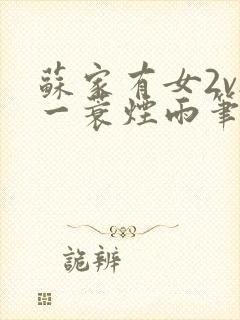 蘇家有女2v
一蓑煙雨筆
詭辨